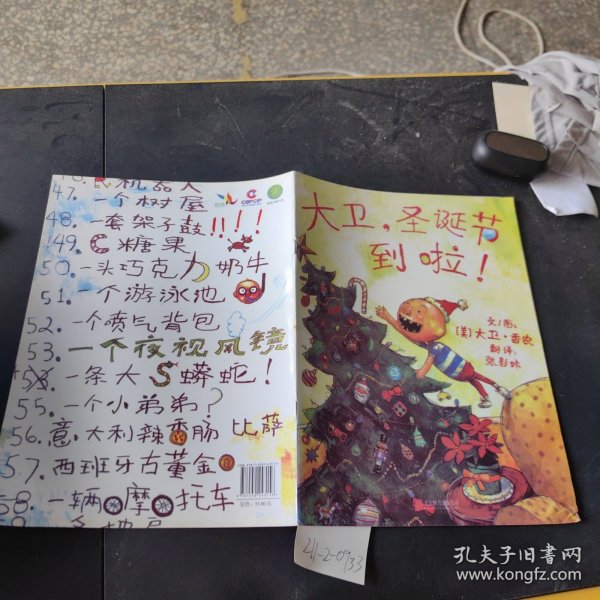 机器人
47.一个树屋
48.一套架子鼓!!!!
49.糖果
50.一头巧克力奶牛
51.一个游泳池
52.一个喷气背包
53.一个夜视风镜
一条大S蟒蛇!
55.一个小弟弟?
56.意大利辣香肠比萨
57.西班牙古董金
58.一辆摩托车
大卫,圣诞节
到啦!
文/图:
[美]大卫·香农
翻译:
211-2-0933
孔夫子旧书网
www.kongfz.com